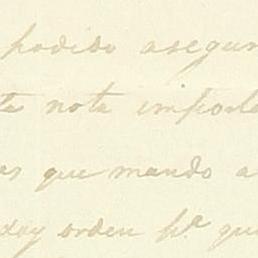 podido asegur
ta nota importa
as que mando a
day orden pª que